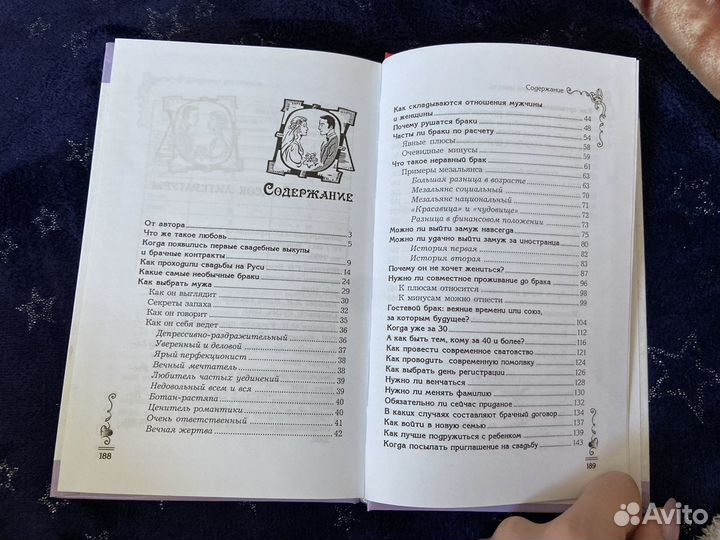 Содержание
От автора 3
Что же такое любовь 5
Когда появились первые свадебные выкупы
и брачные контракты 9
Как проходили свадьбы на Руси 14
Какие самые необычные браки 24
Как выбрать мужа 29
Как он выглядит 30
Секреты запаха 32
Как он говорит 35
Как он себя ведет 36
Депрессивно-раздражительный 36
Уверенный и деловой 37
Ярый перфекционист 38
Вечный мечтатель 38
Любитель частых уединений 39
Недовольный всем и вся 39
Ботан-растяпа 40
Ценитель романтики 40
Очень ответственный 41
Вечная жертва 42
188
Содержание
Как складываются отношения мужчины
и женщины 44
Почему рушатся браки 48
Часты ли браки по расчету 54
Явные плюсы 58
Очевидные минусы 59
Что такое неравный брак 61
Примеры мезальянса 63
Большая разница в возрасте 63
Мезальянс социальный 70
Мезальянс национальный 71
«Красавица» и «чудовище» 72
Разница в финансовом положении 73
Можно ли выйти замуж навсегда 75
Можно ли удачно выйти замуж за иностранца 82
История первая 83
История вторая 84
Почему он не хочет жениться? 87
Нужно ли совместное проживание до брака 96
К плюсам относится 98
К минусам можно отнести 99
Гостевой брак: веяние времени или союз,
за которым будущее? 104
Когда уже за 30 112
А как быть тем, кому за 40 и более? 116
Как провести современное сватовство 121
Как проводить современную помолвку 124
Как выбрать день регистрации 126
Нужно ли венчаться 127
Нужно ли менять фамилию 130
Обязательно ли сейчас приданое 132
В каких случаях составляют брачный договор 134
Как войти в новую семью 137
Как лучше подружиться с ребенком 139
Когда посылать приглашение на свадьбу 143
189
Avito